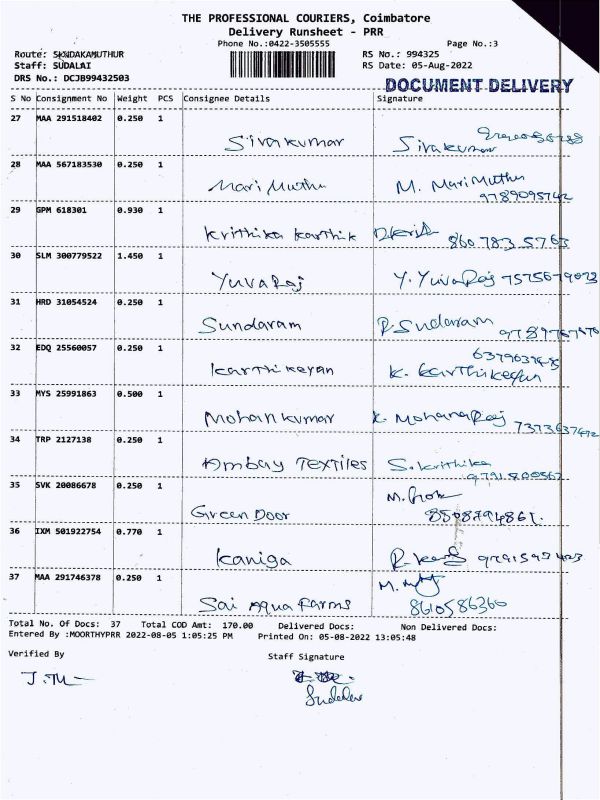 THE PROFESSIONAL COURIERS, Coimbatore
Delivery Runsheet - PRR
Phone No.:0422-3505555 Page No.:3
Route: SUNDAKAMUTHUR RS No.: 994325
Staff: SUDALAI RS Date: 05-Aug-2022
DRS No.: DCJB99432503
DOCUMENT DELIVERY
S No Consignment No Weight PCS Consignee Details Signature
27 MAA 291518402 0.250 1
Sivakumar Sivakumar
28 MAA 567183530 0.250 1
Mari Muthu M. MariMuthu
9789095742
29 GPM 618301 0.930 1
Krithika Karthik 860 783 5763
30 SLM 300779522 1.450 1
Yuvaraj Y. Yuvaraj 7575679073
31 HRD 31054524 0.250 1
Sundaram
32 EDQ 25560057 0.250 1
Karthikeyan K. Karthikeyan
33 MYS 25991863 0.500 1
Mohankumar K. Mohanaraj
34 TRP 2127138 0.250 1
Ambay Textiles S. Krithika
35 SVK 20086678 0.250 1
Green Door 8508794861.
36 IXM 501922754 0.770 1
Kaniga
37 MAA 291746378 0.250 1
Sai Aqua Farms 8610586366
Total No. Of Docs: 37 Total COD Amt: 170.00 Delivered Docs: Non Delivered Docs:
Entered By :MOORTHYPRR 2022-08-05 1:05:25 PM Printed On: 05-08-2022 13:05:48
Verified By Staff Signature